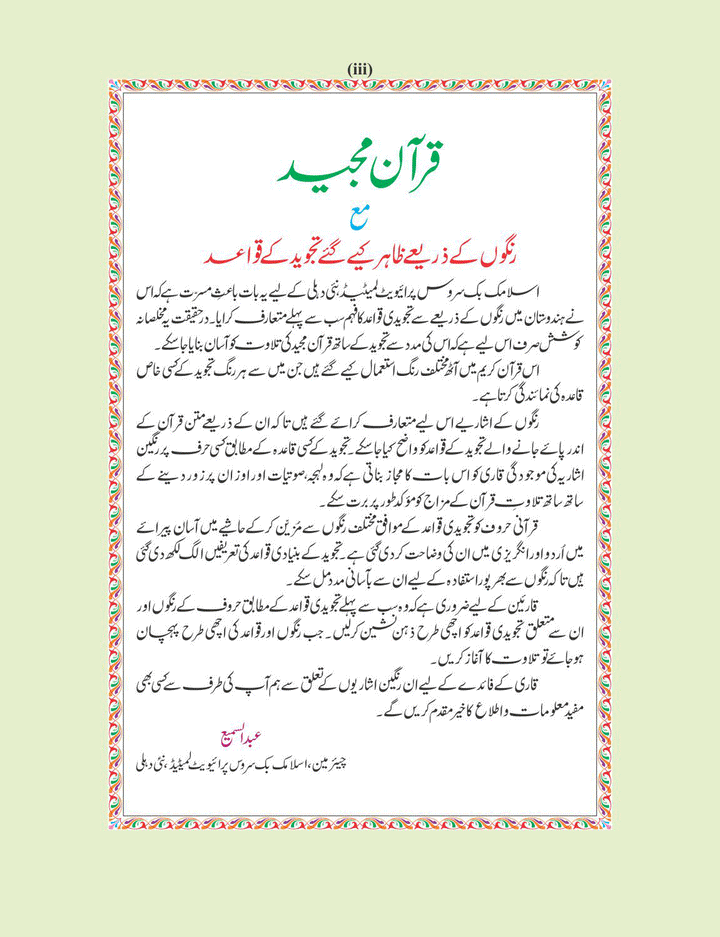 (iii)
قرآن مجید
مع
رنگوں کے ذریعے ظاہر کیے گئے تجوید کے قواعد
اسلامک بک سروس پرائیویٹ لمیٹیڈ، نئی دہلی کے لیے یہ بات باعثِ مسرت ہے کہ اس
نے ہندوستان میں رنگوں کے ذریعے سے تجویدی قواعد کا فہم سب سے پہلے متعارف کرایا۔ درحقیقت یہ مخلصانہ
کوشش صرف اس لیے ہے کہ اس کی مدد سے تجوید کے ساتھ قرآن مجید کی تلاوت کو آسان بنایا جا سکے۔
اس قرآن کریم میں آٹھ مختلف رنگ استعمال کیے گئے ہیں جن میں سے ہر رنگ تجوید کے کسی خاص
قاعدہ کی نمائندگی کرتا ہے۔
رنگوں کے اشاریے اس لیے متعارف کرائے گئے ہیں تا کہ ان کے ذریعے متن قرآن کے
اندر پائے جانے والے تجوید کے قواعد کو واضح کیا جا سکے۔ تجوید کے کسی قاعدہ کے مطابق کسی حرف پر رنگین
اشاریہ کی موجودگی قاری کو اس بات کا مجاز بناتی ہے کہ وہ لہجہ، صوتیات اور اوزان پر زور دینے کے
ساتھ ساتھ تلاوت قرآن کے مزاج کو مؤکد طور پر برت سکے۔
قرآنی حروف کو تجویدی قواعد کے موافق مختلف رنگوں سے مزین کر کے حاشیے میں آسان پیرائے
میں اُردو اور انگریزی میں ان کی وضاحت کر دی گئی ہے۔ تجوید کے بنیادی قواعد کی تعریفیں الگ لکھ دی گئی
ہیں تا کہ رنگوں سے بھرپور استفادہ کے لیے ان سے بآسانی مدد مل سکے۔
قارئین کے لیے ضروری ہے کہ وہ سب سے پہلے تجویدی قواعد کے مطابق حروف کے رنگوں اور
ان سے متعلق تجویدی قواعد کو اچھی طرح ذہن نشین کر لیں۔ جب رنگوں اور قواعد کی اچھی طرح پہچان
ہو جائے تو تلاوت کا آغاز کریں۔
قاری کے فائدے کے لیے ان رنگین اشاریوں کے تعلق سے ہم آپ کی طرف سے کسی بھی
مفید معلومات و اطلاع کا خیر مقدم کریں گے۔
عبدالسمیع
چیئرمین، اسلامک بک سروس پرائیویٹ لمیٹیڈ، نئی دہلی